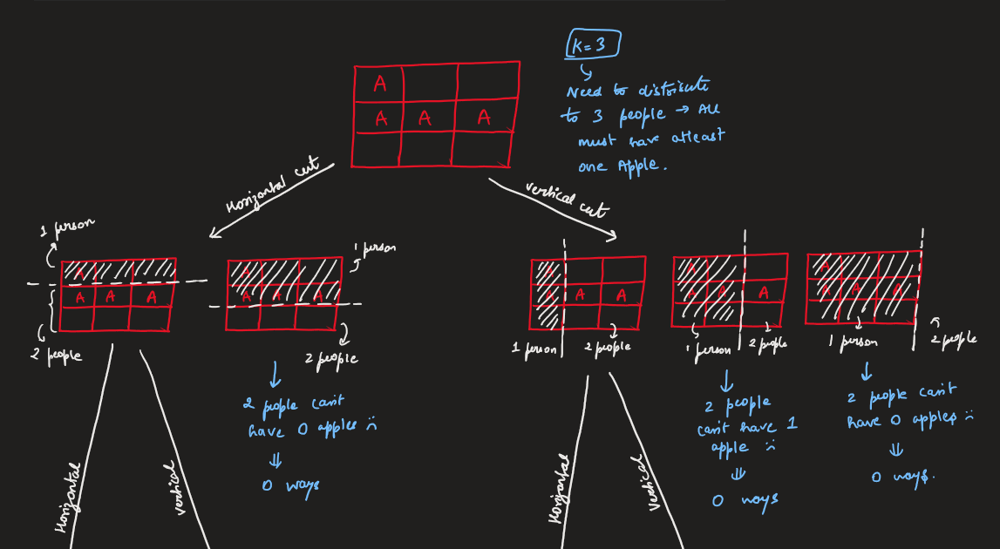 K=3
Need to distribute
to 3 people → All
must have atleast
one Apple.
A
A A A
Horizontal cut
vertical cut
1 person
A
A A A
2 people
1 person
A
2 people
A A
1 person
2 people
A
1 person
2 people
A
A
1 person
2 people
2 people can't
have 0 apples
⇓
0 ways
2 people
can't have 1
apple
⇓
0 ways
2 people can't
have 0 apples
⇓
0 ways.
Horizontal
vertical
Horizontal
Vertical